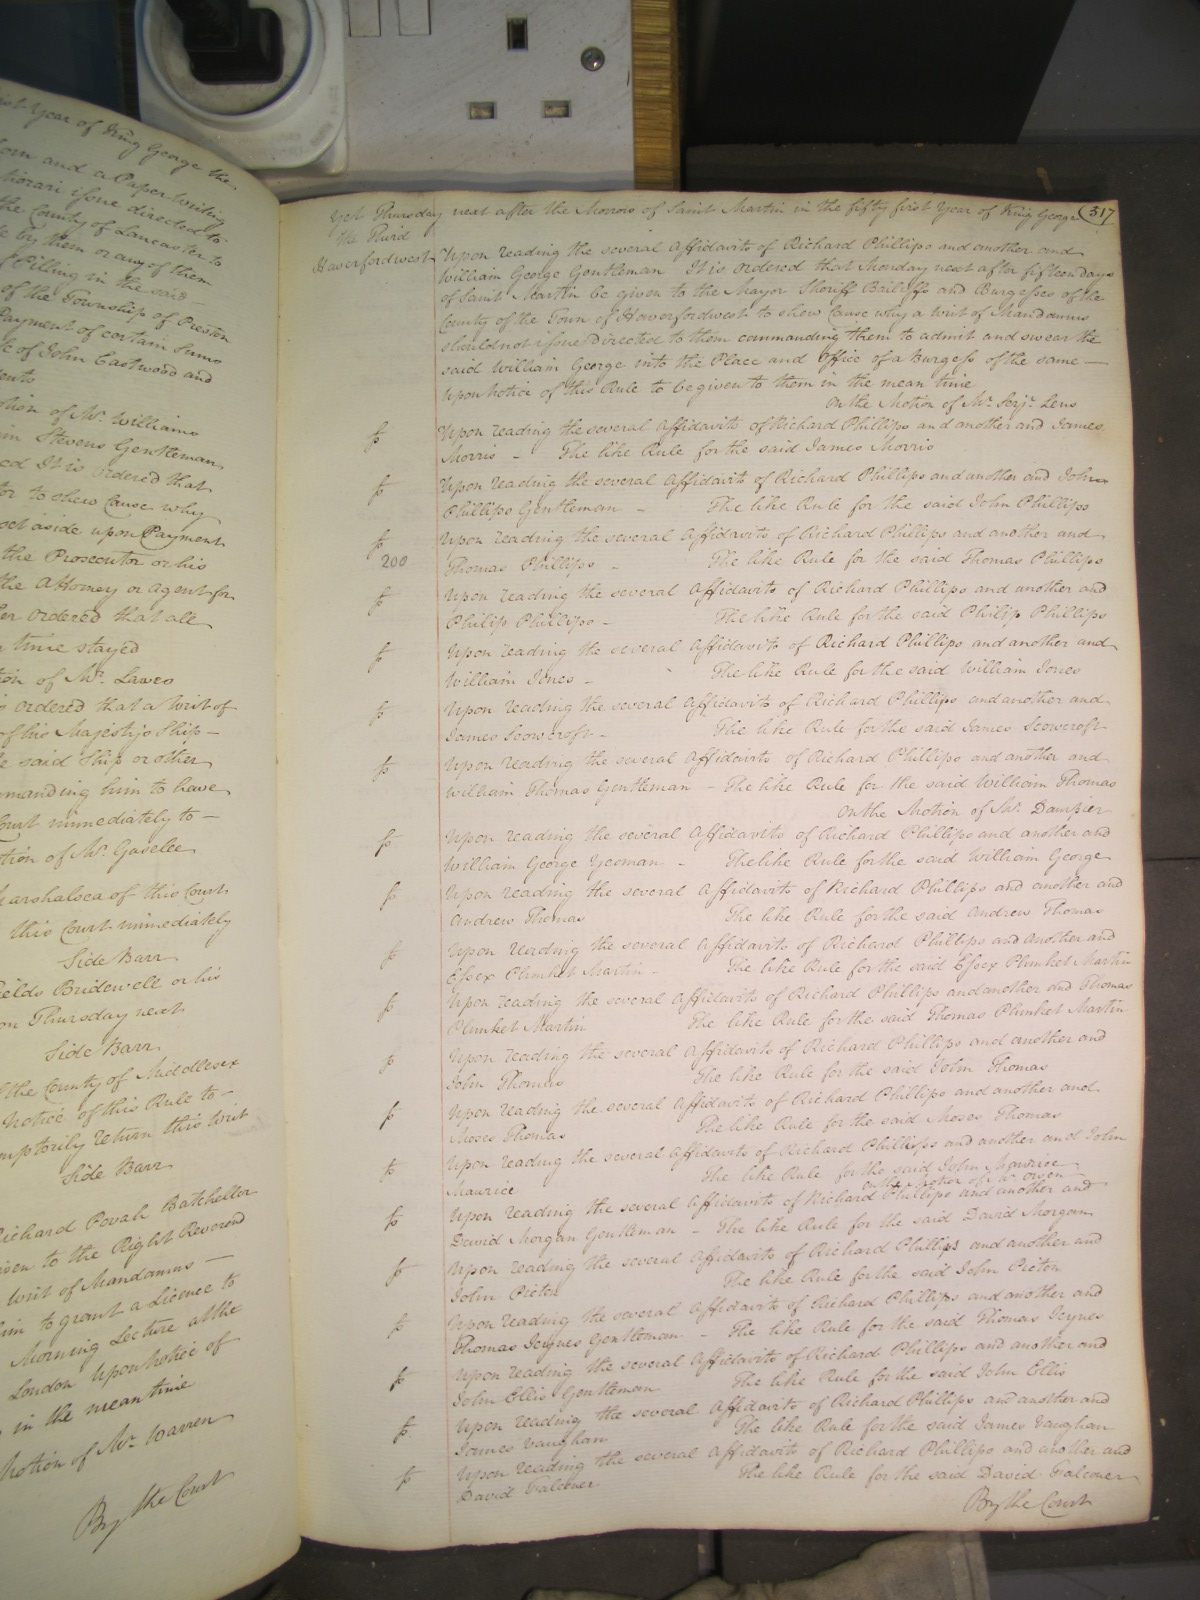 first Year of King George the
born and a Paper writing
tiorari issue directed to
the County of Lancaster to
by them or any of them
Pilling in the said
of the Township of Preston
Payment of certain Sums
of John Eastwood and
tion of Mr. Williams
Stevens Gentleman
ed It is ordered that
tor to shew Cause why
set aside upon Payment
the Prosecutor or his
the Attorney or Agent for
er ordered that all
time stayed
tion of Mr. Lawes
ordered that a writ of
of his Majesty's Ship —
said Ship or other
manding him to have
Court immediately to —
tion of Mr. Gaselee
Marshalsea of this Court
this Court immediately
Side Barr
ields Bridewell or his
on Thursday next
Side Barr
the County of Middlesex
Notice of this Rule to —
mptorily return this writ
Side Barr
Richard Povah Batchellor
iven to the Right Reverend
writ of Mandamus —
him to grant a Licence to
Morning Lecture at the
London upon Notice of
in the mean time
Motion of Mr. Warren
By the Court
Yet Thursday next after the Morrow of Saint Martin in the fifty first Year of King George 317
the Third
Haverfordwest Upon reading the several Affidavits of Richard Phillips and another and
William George Gentleman It is ordered that Monday next after fifteen days
of Saint Martin be given to the Mayor Sheriff Bailiffs and Burgesses of the
County of the Town of Haverfordwest to shew Cause why a writ of Mandamus
should not issue Directed to them commanding them to admit and swear the
said William George into the Place and Office of a Burgess of the same —
Upon Notice of this Rule to be given to them in the mean time
On the Motion of Mr. Serjt. Lens
Upon reading the several Affidavits of Richard Phillips and another and James
Morris - The like Rule for the said James Morris
Upon reading the several Affidavits of Richard Phillips and another and John
Phillips Gentleman - The like Rule for the said John Phillips
Upon reading the several Affidavits of Richard Phillips and another and
200 Thomas Phillips - The like Rule for the said Thomas Phillips
Upon reading the several Affidavits of Richard Phillips and another and
Philip Phillips - The like Rule for the said Philip Phillips
Upon reading the several Affidavits of Richard Phillips and another and
William Jones - The like Rule for the said William Jones
Upon reading the several Affidavits of Richard Phillips and another and
James Scowcroft - The like Rule for the said James Scowcroft
Upon reading the several Affidavits of Richard Phillips and another and
William Thomas Gentleman - The like Rule for the said William Thomas
On the Motion of Mr. Dampier
Upon reading the several Affidavits of Richard Phillips and another and
William George Yeoman - The like Rule for the said William George
Upon reading the several Affidavits of Richard Phillips and another and
Andrew Thomas The like Rule for the said Andrew Thomas
Upon reading the several Affidavits of Richard Phillips and another and
Essex Plunket Martin - The like Rule for the said Essex Plunket Martin
Upon reading the several Affidavits of Richard Phillips and another and Thomas
Plunket Martin The like Rule for the said Thomas Plunket Martin
Upon reading the several Affidavits of Richard Phillips and another and
John Thomas The like Rule for the said John Thomas
Upon reading the several Affidavits of Richard Phillips and another and
Moses Thomas The like Rule for the said Moses Thomas
Upon reading the several Affidavits of Richard Phillips and another and John
Maurice The like Rule for the said John Maurice
On the Motion of Mr. Owen
Upon reading the several Affidavits of Richard Phillips and another and
David Morgan Gentleman - The like Rule for the said David Morgan
Upon reading the several Affidavits of Richard Phillips and another and
John Picton The like Rule for the said John Picton
Upon reading the several Affidavits of Richard Phillips and another and
Thomas Gentleman - The like Rule for the said Thomas
Upon reading the several Affidavits of Richard Phillips and another and
John Ellis Gentleman The like Rule for the said John Ellis
Upon reading the several Affidavits of Richard Phillips and another and
James Vaughan The like Rule for the said James Vaughan
Upon reading the several Affidavits of Richard Phillips and another and
David Falconer The like Rule for the said David Falconer
By the Court